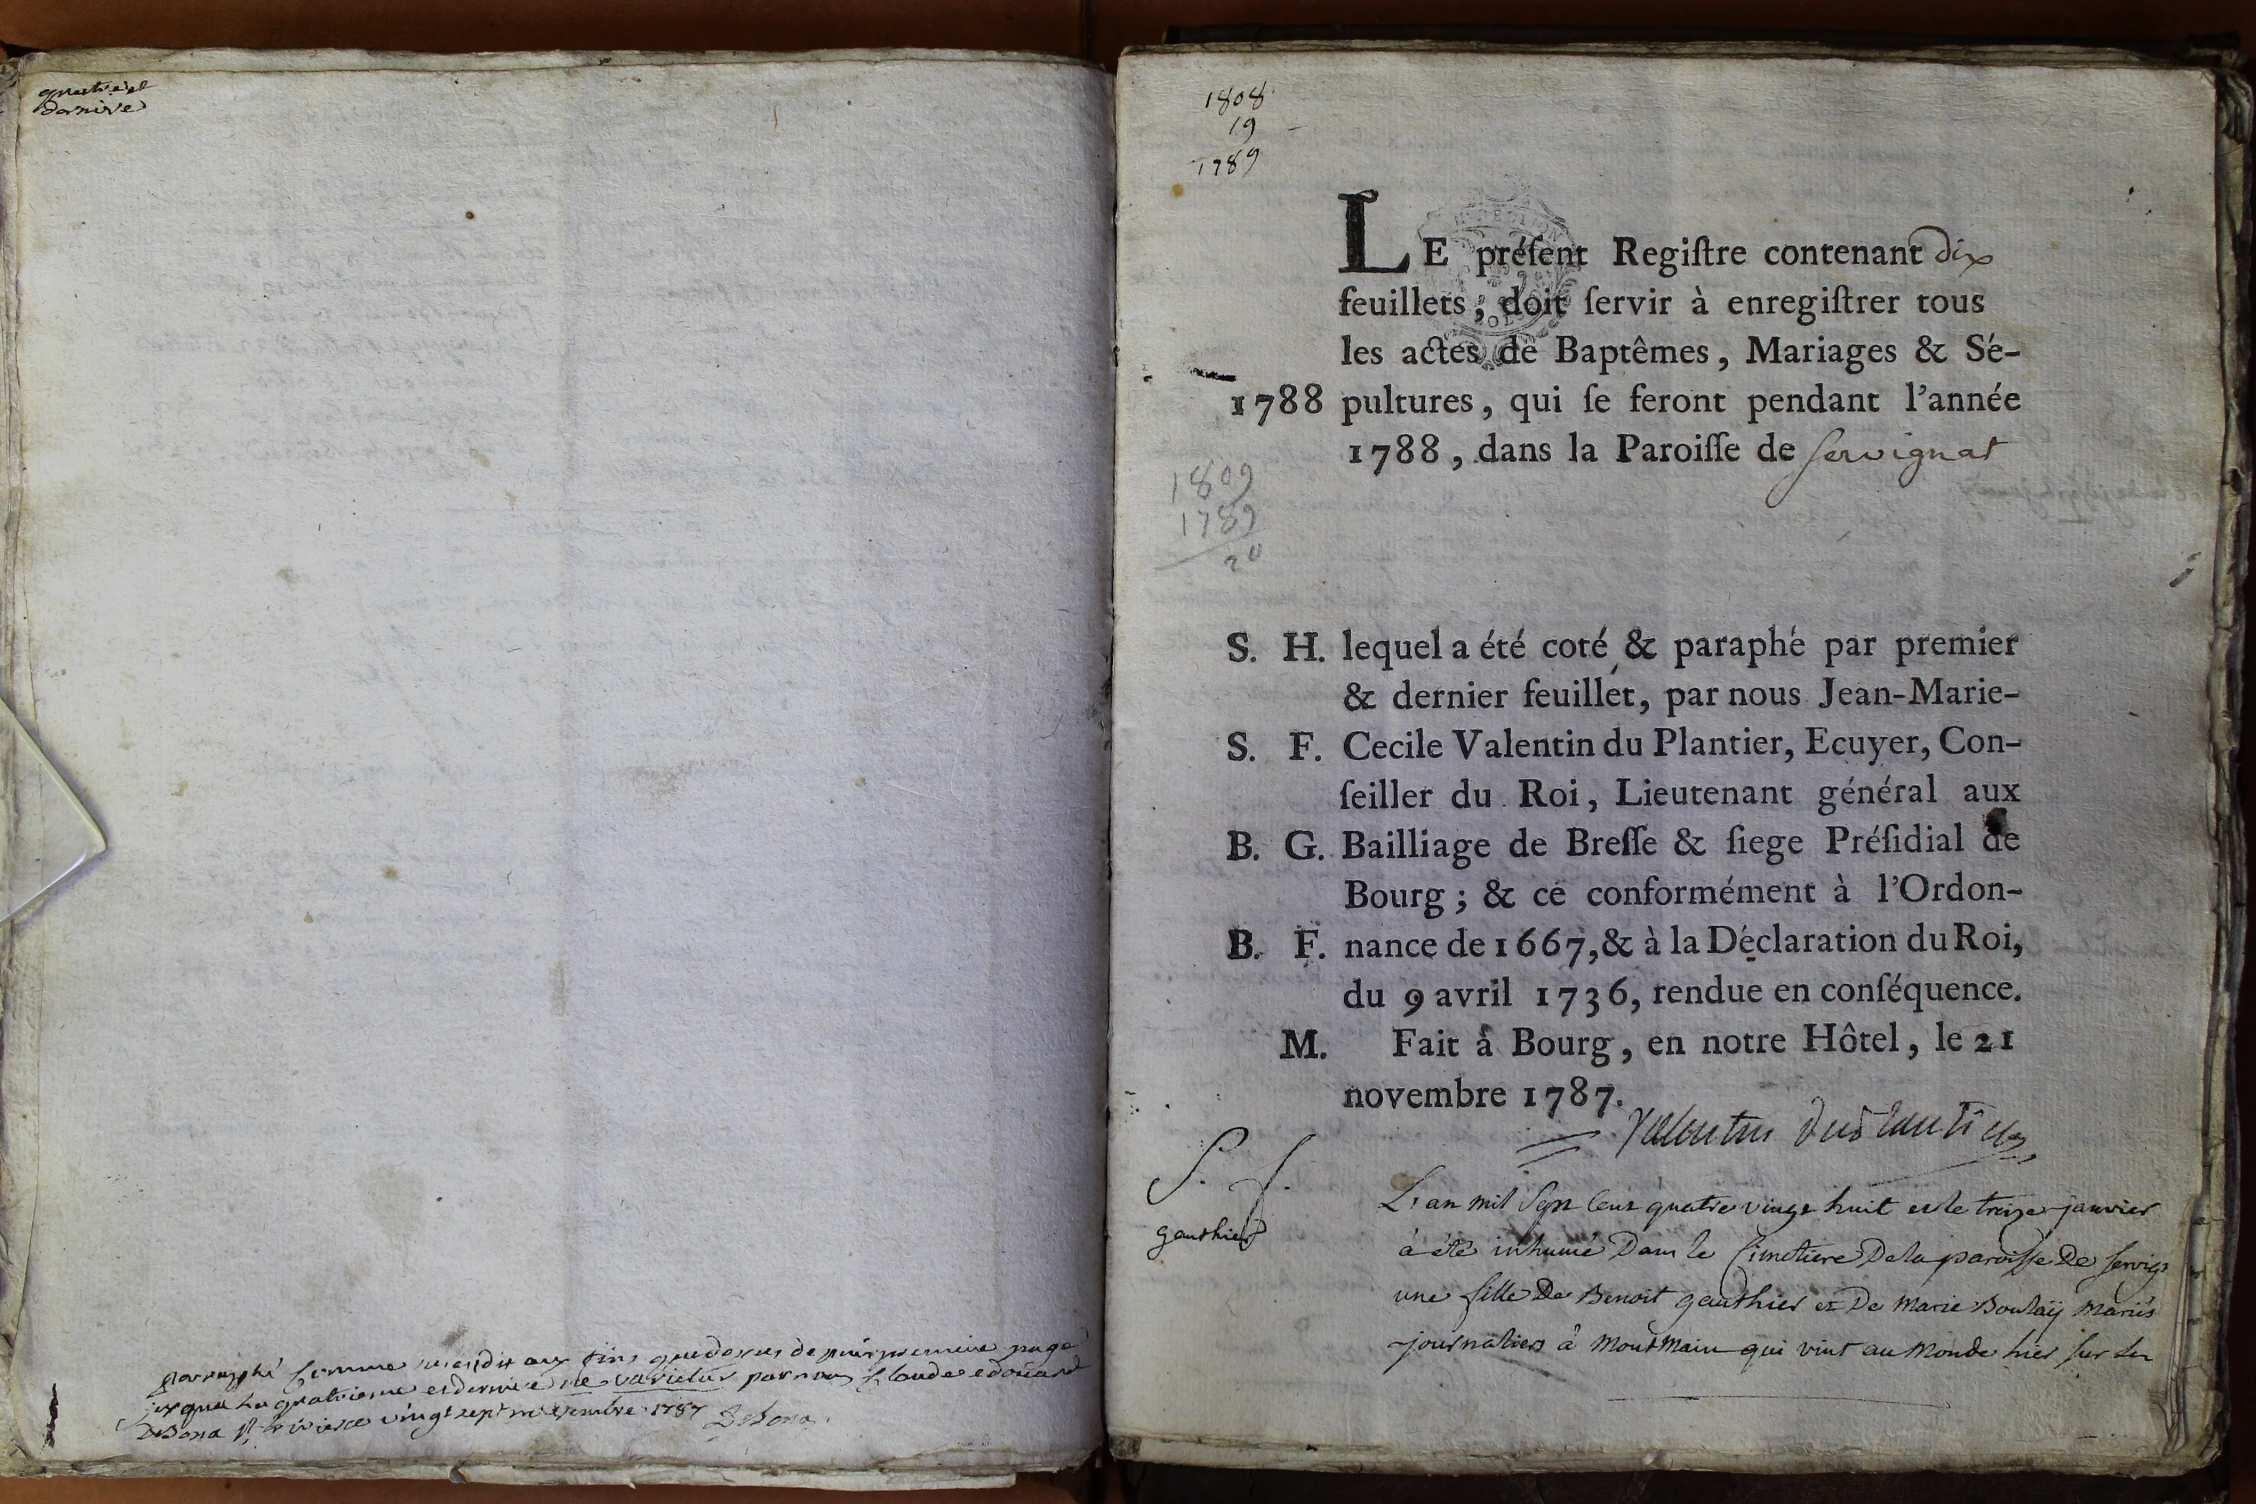 quatrie et
derniere
parraphé comme
jusqua la quatrieme et derniere ne varietur par nous Claude edoüard
DeBona vingt sept novembre 1787 DeBona
1808
19
1789
LE préſent Regiſtre contenant dix
feuillets ; doit ſervir à enregiſtrer tous
les actes de Baptêmes, Mariages & Sé-
1788 pultures, qui ſe feront pendant l'année
1788, dans la Paroiſſe de servignat
1809
1789
20
S. H. lequel a été coté & paraphé par premier
& dernier feuillet, par nous Jean-Marie-
S. F. Cecile Valentin du Plantier, Ecuyer, Con-
ſeiller du Roi, Lieutenant général aux
B. G. Bailliage de Breſſe & ſiege Préſidial de
Bourg ; & ce conformément à l'Ordon-
B. F. nance de 1667, & à la Déclaration du Roi,
du 9 avril 1736, rendue en conſéquence.
M. Fait à Bourg, en notre Hôtel, le 21
novembre 1787.
Valentin duPlantier
S. f.
gauthier
L'an mil Sept Cent quatre vingt huit et le treize janvier
a été inhumé Dans le Cimetiere De la paroisse De servig
une fille De Benoit gauthier et De Marie Boulaÿ mariés
journaliers à Montmain qui vint au Monde hier sur les